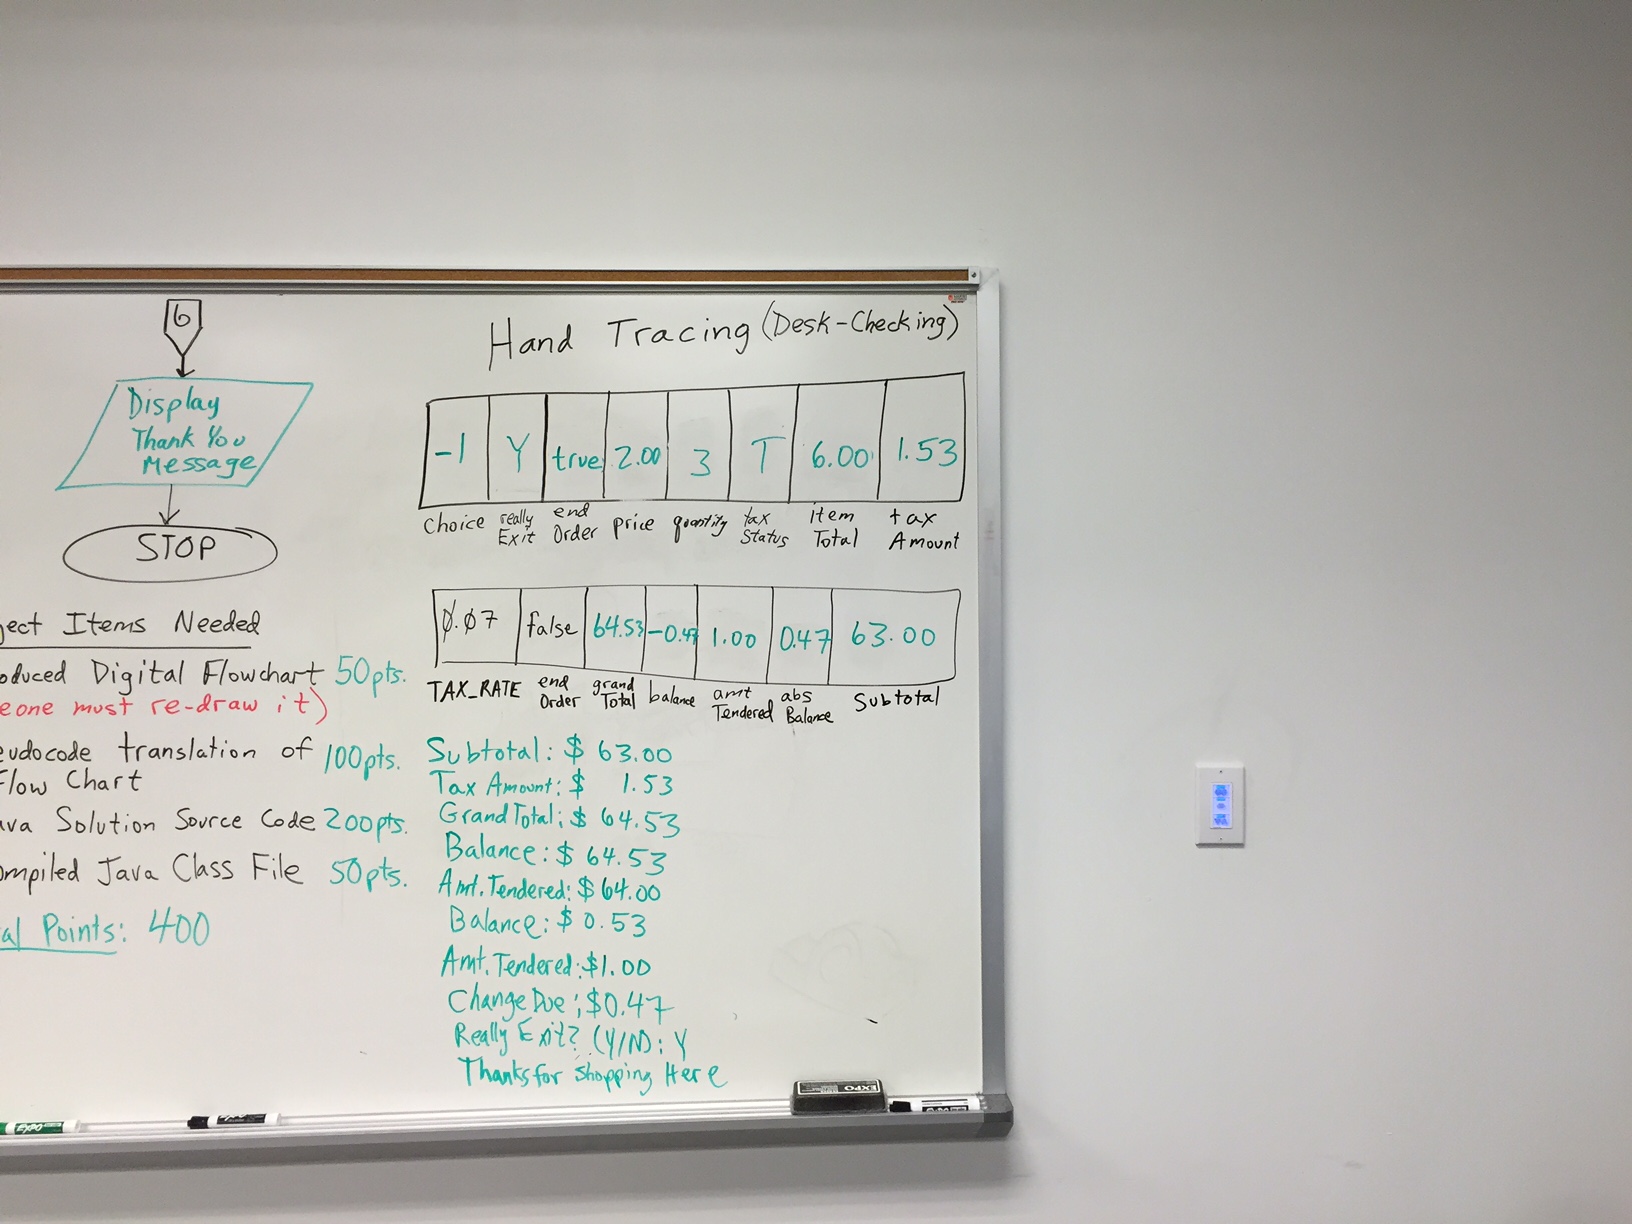 6
Display
Thank You
Message
STOP
ject Items Needed
oduced Digital Flowchart 50pts.
eone must re-draw it)
eudocode translation of 100pts.
Flow Chart
ava Solution Source Code 200pts.
ompiled Java Class File 50pts.
al Points: 400
Hand Tracing (Desk-Checking)
-1 Y true 2.00 3 T 6.00 1.53
Choice really Exit end Order price quantity tax Status item Total tax Amount
0.07 false 64.53 -0.47 1.00 0.47 63.00
TAX_RATE end Order grand Total balance amt Tendered abs Balance Subtotal
Subtotal: $ 63.00
Tax Amount: $ 1.53
Grand Total: $ 64.53
Balance: $ 64.53
Amt. Tendered: $ 64.00
Balance: $ 0.53
Amt. Tendered: $1.00
Change Due: $0.47
Really Exit? (Y/N): Y
Thanks for Shopping Here
EXPO
EXPO